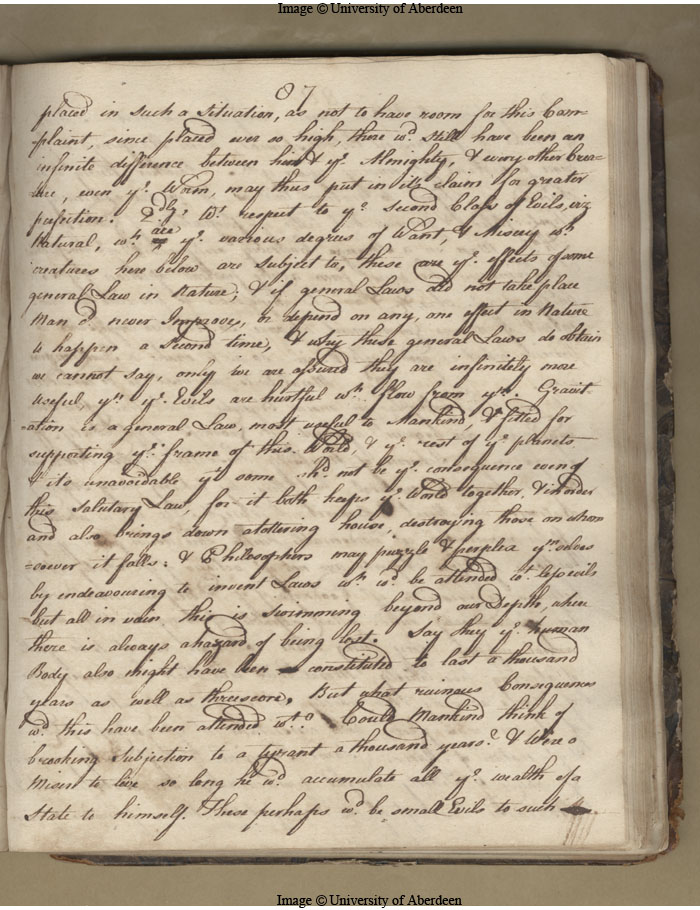 Image © University of Aberdeen
87
placed in such a Situation, as not to have room for this Com-
-plaint, since placed ever so high, there wd. still have been an
infinite difference between him & ye. Almighty, & every other Crea-
-ture, even ye. Worm, may thus put in its claim for greater
perfection. 2dly. Wt. respect to ye. Second Class of Evils, viz
Natural, wh. are ye. various degrees of Want, & Misery wh.
creatures here below are Subject to, these are ye. effects of some
general Law in Nature; & if general Laws did not take place
Man cd. never Improve, or depend on any, one effect in Nature
to happen a Second time, & why these general Laws do obtain
we cannot say, only we are assured they are infinitely more
useful, yn. ye. Evils are hurtful wh. flow from ym. Gravit-
-ation is a general Law, most useful to Mankind, & fitted for
supporting ye. frame of this World, & ye. rest of ye. planets
& its unavoidable yt. some shd. not be ye. consequence even of
this Salutary Law, for it both keeps ye. World together, & in order
and also brings down a tottering house, destroying those on whom
-soever it falls: & Philosophers may puzzle & perplex ym.selves
by endeavouring to invent Laws wh. wd. be attended wt. less evils
but all in vain this is swimming beyond our Depth, where
there is always a hazard of being lost. Say they ye. human
Body also might have been constituted to last a thousand
years as well as threescore, But what ruinous Consequences
wd. this have been attended wt.? Could Mankind think of
brooking Subjection to a tyrant a thousand years? & Were a
Miser to live so long he wd. accumulate all ye. wealth of a
State to himself. These perhaps wd. be small Evils to such
Image © University of Aberdeen